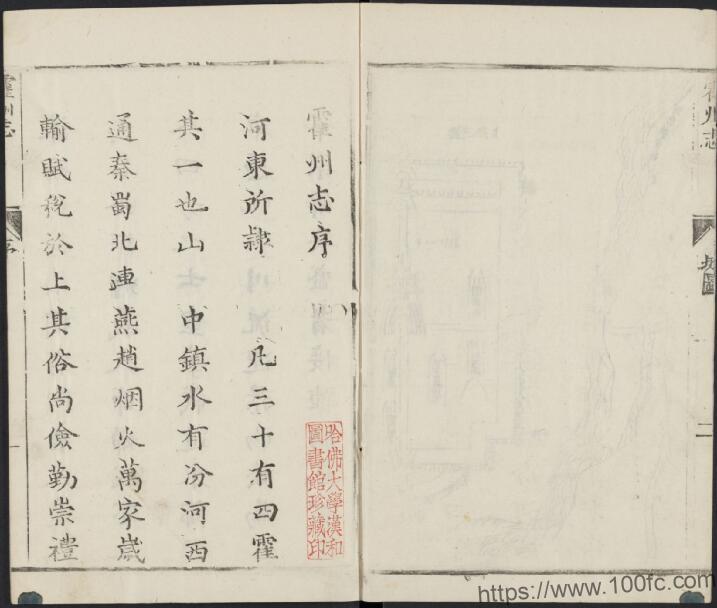 霍州志
圖
二
霍州志序
河東所隸凡三十有四霍
其一也山中鎮水有汾河西
通秦蜀北連燕趙烟火萬家歲
輸賦稅於上其俗尚儉勤崇禮
哈佛大學漢和
圖書館珍藏印
霍州志
序
一
https://www.100fc.com